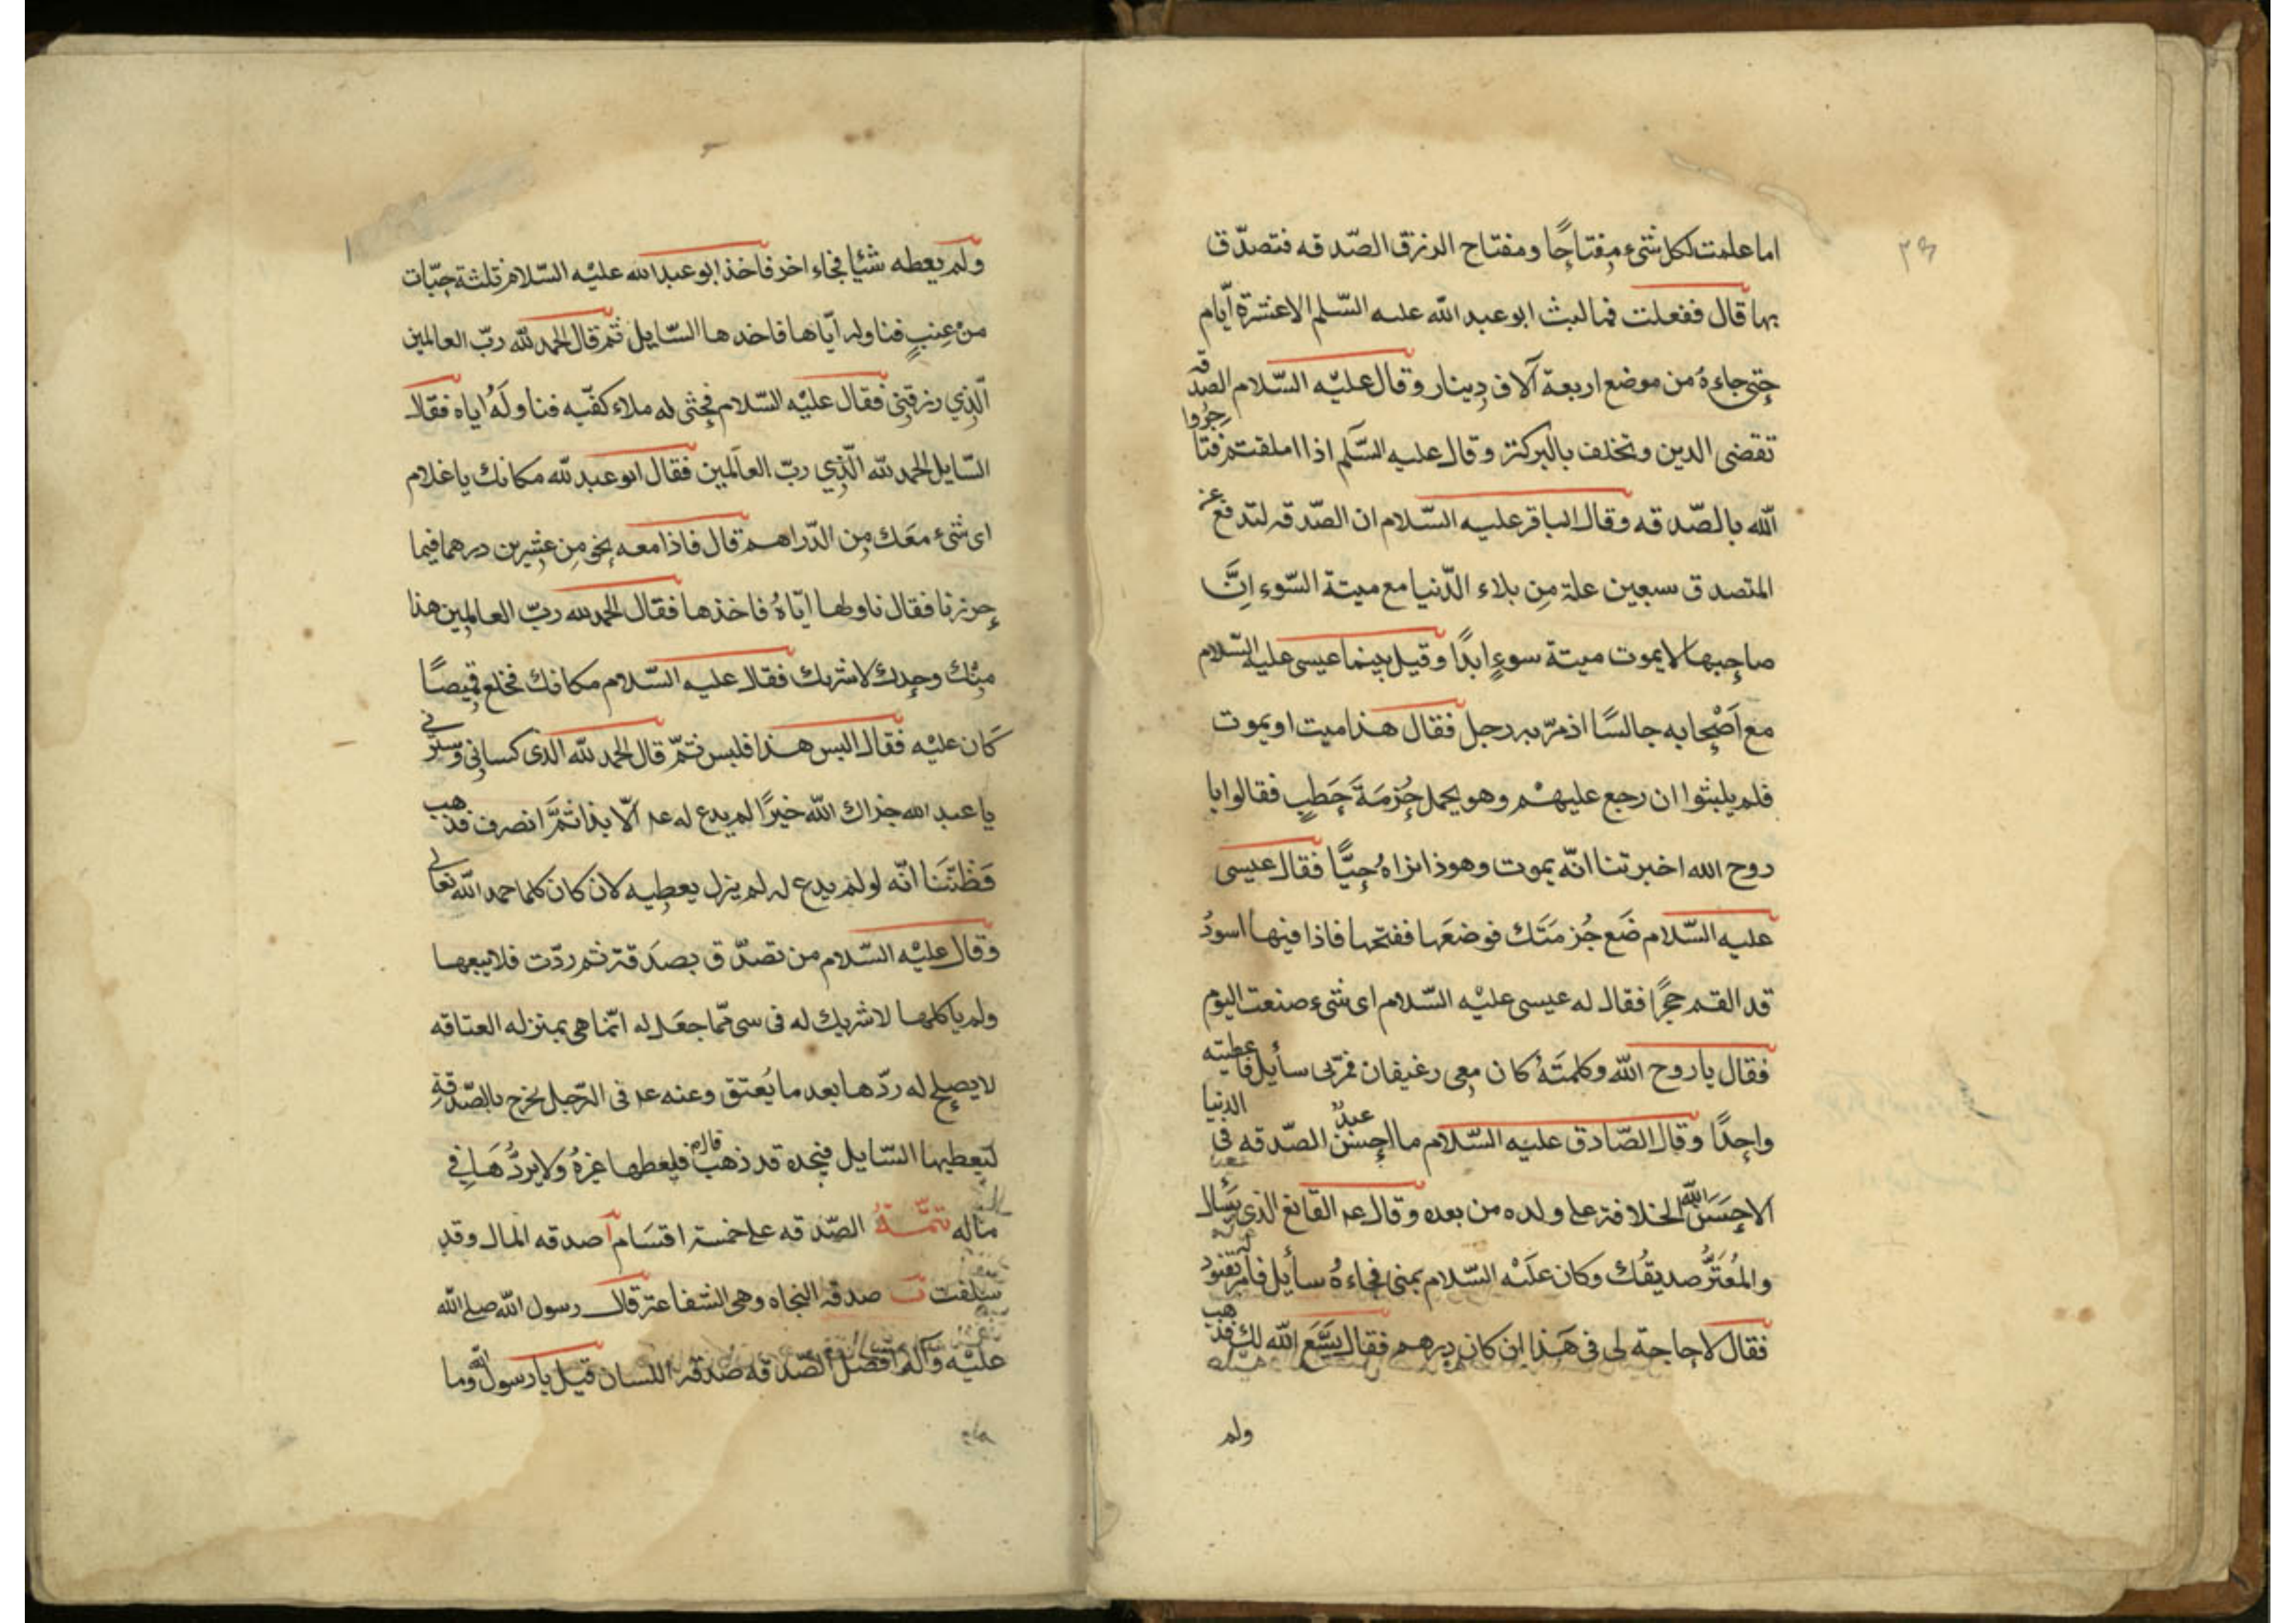 اما علمت لكل شىء مفتاحًا ومفتاح الرزق الصّدقه فتصدّق
بها قال ففعلت فما لبث ابو عبد الله عليه السّلم الا عشرة ايّام
حتى جاءهُ من موضع اربعة آلاف دينار وقال عليْه السّلام الصّدقه
تقضى الدين وتخلف بالبركة وقال عليه السّلم اذا املقتم فتاجروا
الله بالصّدقه وقال الباقر عليه السّلام ان الصّدقه لتدفع عن
المتصدق سبعين علة مِن بلاء الدّنيا مع ميتة السّوء انَّ
صاحبها لا يموت ميتة سوءٍ ابدًا وقيل بينما عيسى عليه السّلام
مع اَصْحابه جالسًا اذ مرّ به رجل فقال هذا ميت او يموت
فلم يلبثوا ان رجع عليهْم وهو يحمل حُزمَةَ حَطبٍ فقالوا يا
روح الله اخبرتنا انّه يموت وهوذا نراهُ حيًّا فقال عيسى
عليه السّلام ضَع حُزمَتَك فوضعَها ففتحها فاذا فيها اسودُ
قد القم حجرًا فقال له عيسى عليْه السّلام اى شىء صنعت اليوم
فقال يا روح الله وكلمتَهُ كان معى رغيفان فمرّبى سأيل فاعطيته
واحدًا وقال الصّادق عليه السّلام ما احسن عبدٌ الصّدقه فى الدنيا
الا احسَنَ اللّه الخلافة على ولده من بعده وقال عم القانع الذى يسَال
والمُعتَرُّ صديقُك وكان علَيْه السّلام بمنى فجاءهُ سأيل فامر له بعنقود
فقال لا حاجة لى فى هَذا ان كان درهم فقال يسَّع الله لك فذهب
ولم
ولم يعطه شيًا فجاء اخر فاخذ ابو عبد الله عليْه السّلام ثلثة حبّات
منْ عِنبٍ فناوله ايّاها فاخدها السّايل ثم قال الحمد لله ربّ العالمين
الّذي رزقنى فقال عليْه السّلام فحثى له ملاء كفّيه فناولَهُ اياه فقال
السّايل الحمد لله الّذي ربّ العاَلمين فقال ابو عبد لله مكانك يا غلام
اى شىء معَك مِن الدّراهم قال فاذا معه نحو مِن عشرين درهما فيما
حرزنا فقال ناولها ايّاهُ فاخذها فقال الحمد لله ربّ العالمين هذا
منْك وحدك لا شريك فقال عليه السّلام مكانك فخلع قميصًا
كَان عليْه فقال البس هذا فلبس ثمّ قال الحمد لله الذى كسانى وسترنى
يا عبد الله جزاك الله خيرًا لم يدع له عم الّا بذا ثمَّ انصرف فذهب
فَظنّنَا انّه لو لم يدع له لم يزل يعطيه لان كان كلما حمد الله تعالى
وقال عليْه السّلام من تصدّق بصَدقة ثم ردّت فلا يبعها
ولم ياكلها لا شريك له فى سى ممّا جعَل له انّما هى بمنزله العتاقه
لا يصلح له ردّها بعد ما يُعتق وعنه عم فى الرّجل يخرج بالصّدقةِ
ليعطيها السّايل فيجده قد ذهب قال فليعطها غيرهُ ولا يردُّهَا فِي
ماله تتمّةُ الصّدقه على خمسة اقسَام آ صدقه المال وقد
سلفت ب صدقه الجاه وهى الشفاعة قال رسول الله صلى الله
عليْه وآله افضل الصّدقه صدقه اللسان قيل يا رسول الله وما